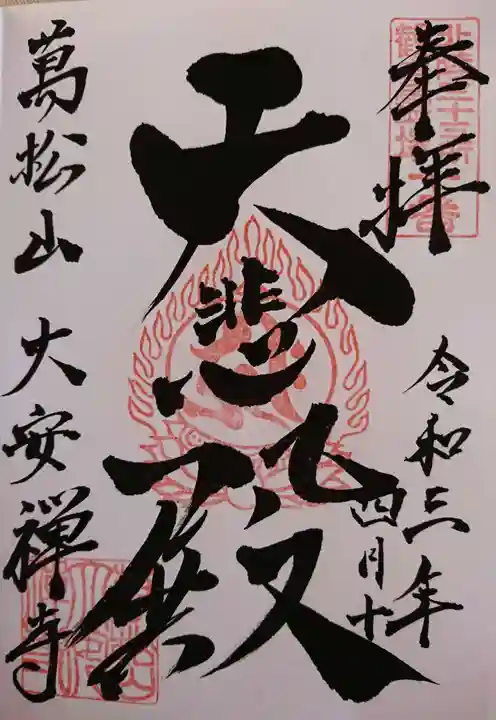 奉拝
令和三年
四月十
大悲殿
萬松山 大安禅寺